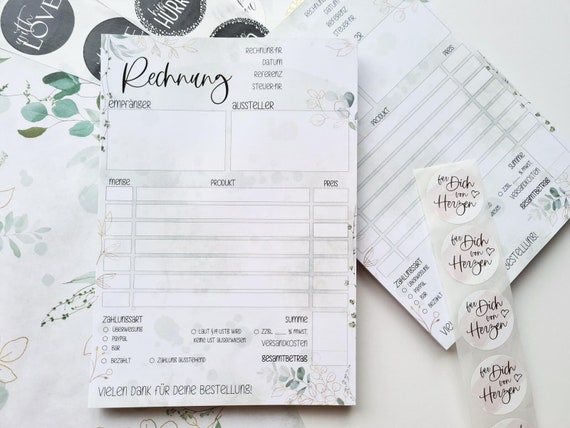 with
LOVE
HURRA
Rechnung
RECHNUNGS-NR.
DATUM
REFERENZ
STEUER-NR.
EMPFÄNGER AUSSTELLER
MENGE PRODUKT PREIS
ZAHLUNGSART
ÜBERWEISUNG
PAYPAL
BAR
BEZAHLT ZAHLUNG AUSSTEHEND
LAUT §19 USTG WIRD
KEINE UST AUSGEWIESEN
SUMME
ZZGL. ____ % MWST.
VERSANDKOSTEN
GESAMTBETRAG
VIELEN DANK FÜR DEINE BESTELLUNG!
DATUM
REFERENZ
STEUER-NR.
PREIS
PRODUKT
SUMME
ZZGL. ____ % MWST.
VERSANDKOSTEN
GESAMTBETRAG
ZAHLUNGSART
ÜBERWEISUNG
PAYPAL
BAR
BEZAHLT
BESTELLUNG!
für Dich
von
Herzen
für Dich
von
Herzen
für Dich
von
Herzen
für Dich
von
Herzen